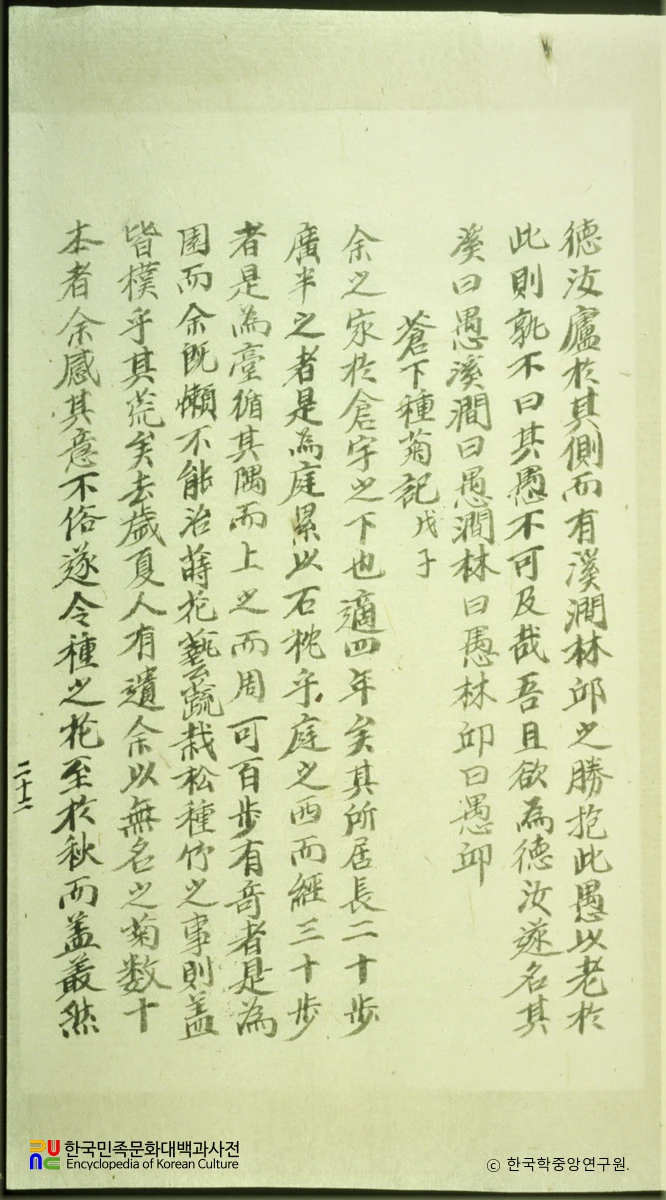 德汝廬於其側而有溪澗林邱之勝抱此愚以老於
此則孰不曰其愚不可及哉吾且欲為德汝遂名其
溪曰愚溪澗曰愚澗林曰愚林邱曰愚邱
蒼下種菊記 戊子
余之家於倉宇之下也適四年矣其所居長二十步
廣半之者是為庭累以石枕乎庭之西而經三十步
者是為臺循其隅而上之而周可百步有奇者是為
園而余既懶不能治蒔花藝蔬栽松種竹之事則盖
皆樸乎其荒矣去歲夏人有遺余以無名之菊数十
本者余感其意不俗遂令種之花至於秋而盖叢然
二十二
한국민족문화대백과사전
Encyclopedia of Korean Culture
© 한국학중앙연구원.